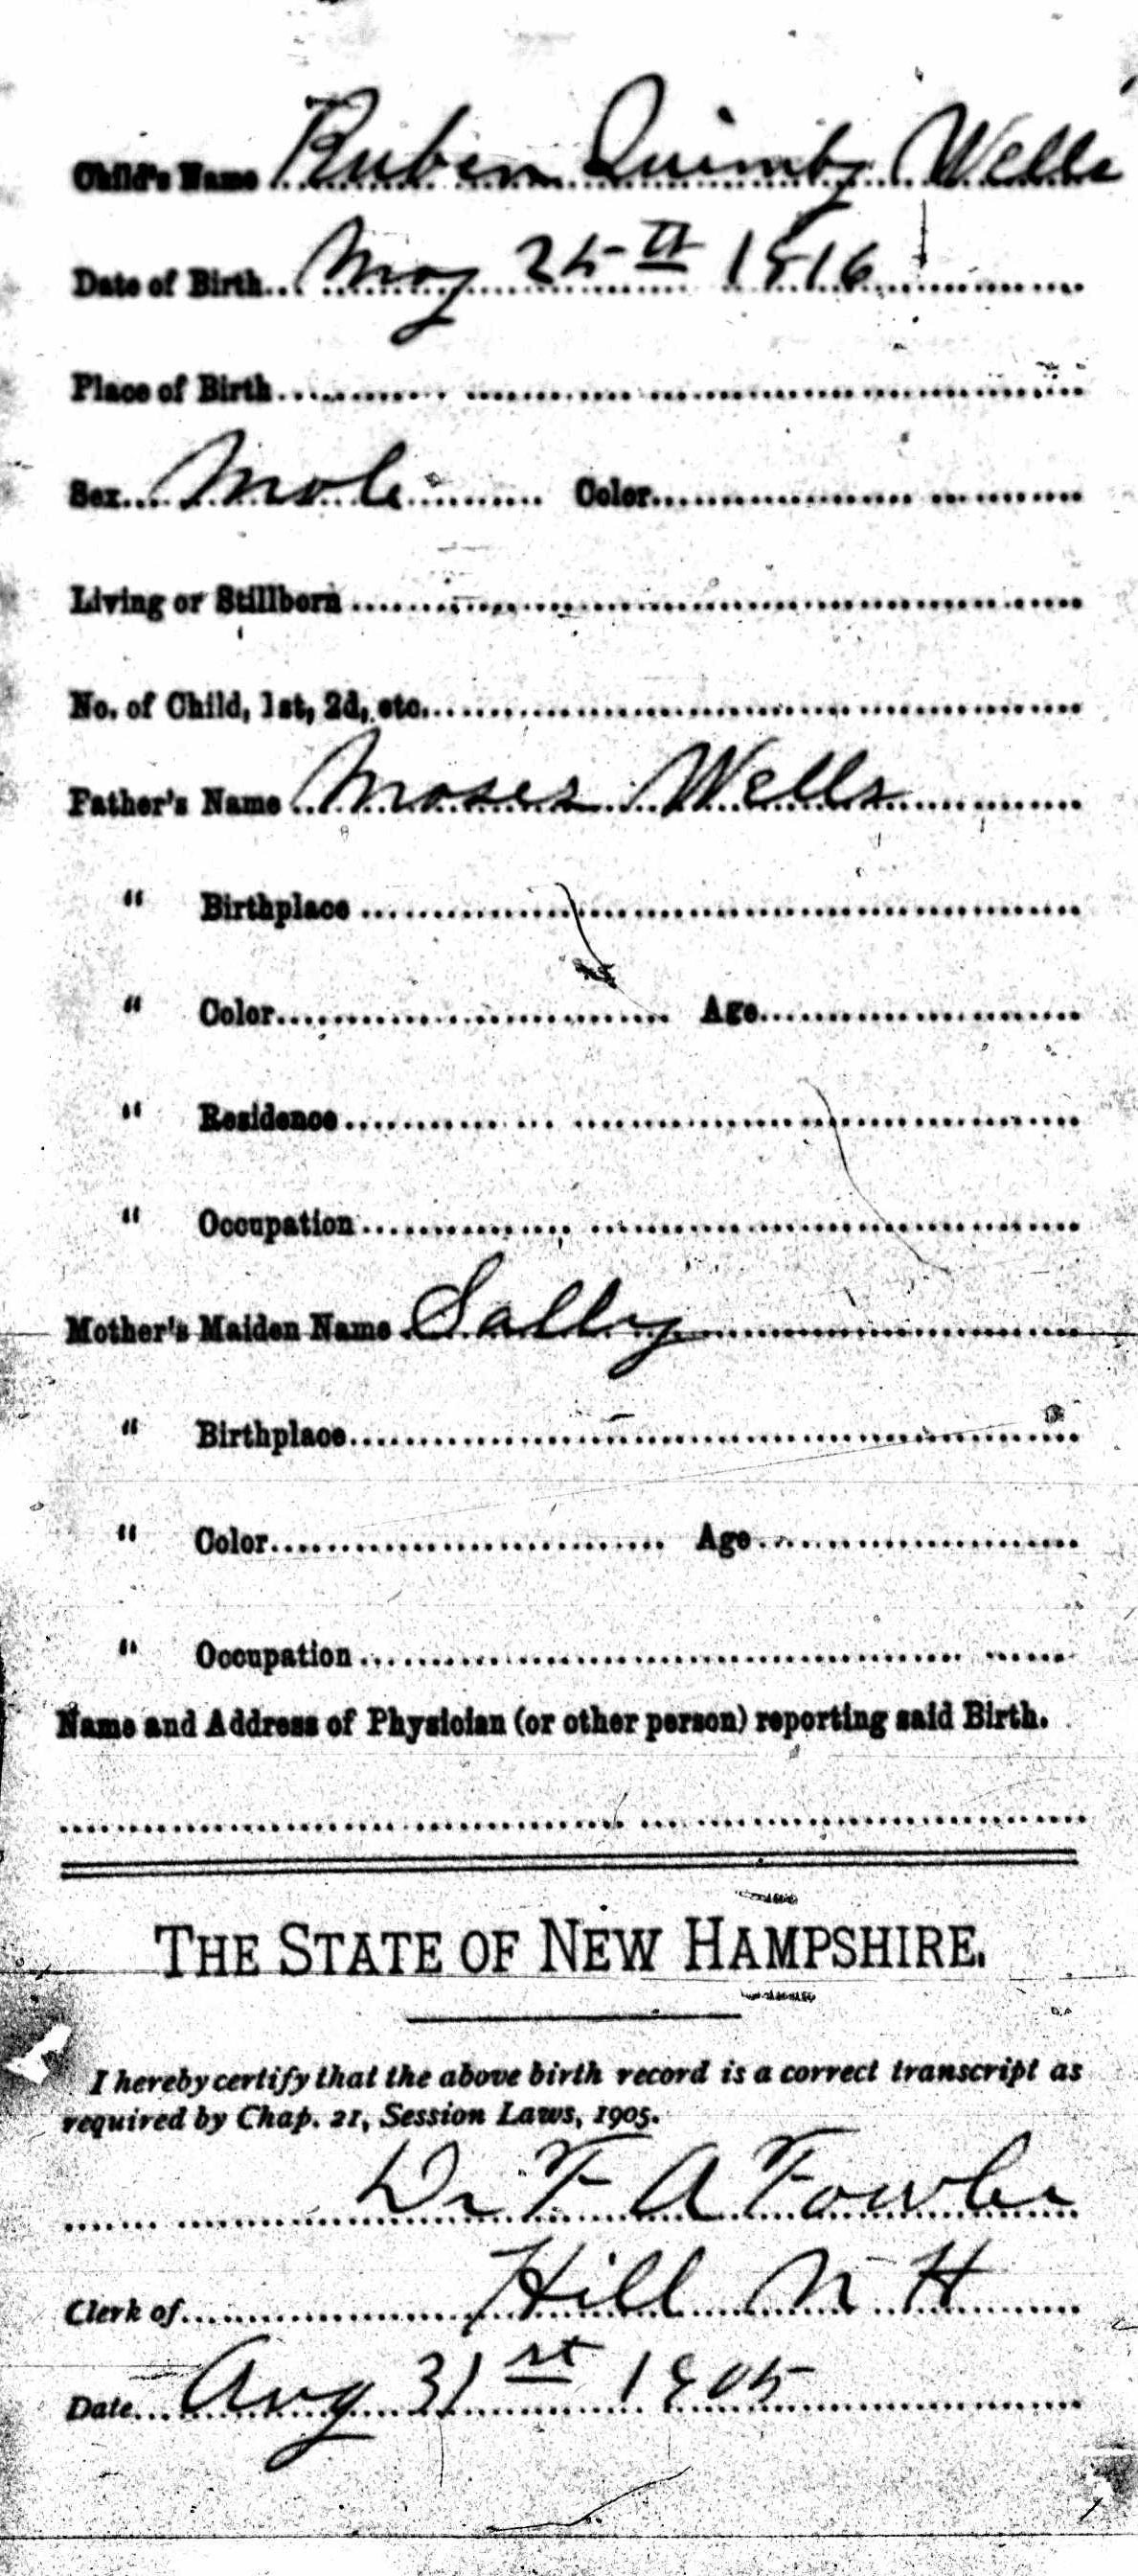 Child's Name Ruben Quimby Wells
Date of Birth May 25th 1816
Place of Birth
Sex Male Color
Living or Stillborn
No. of Child, 1st, 2d, etc.
Father's Name Moses Wells
" Birthplace
" Color Age
" Residence
" Occupation
Mother's Maiden Name Sally
" Birthplace
" Color Age
" Occupation
Name and Address of Physician (or other person) reporting said Birth.
THE STATE OF NEW HAMPSHIRE.
I hereby certify that the above birth record is a correct transcript as
required by Chap. 21, Session Laws, 1905.
Dr F A Fowler
Clerk of Hill N H
Date Aug 31st 1905